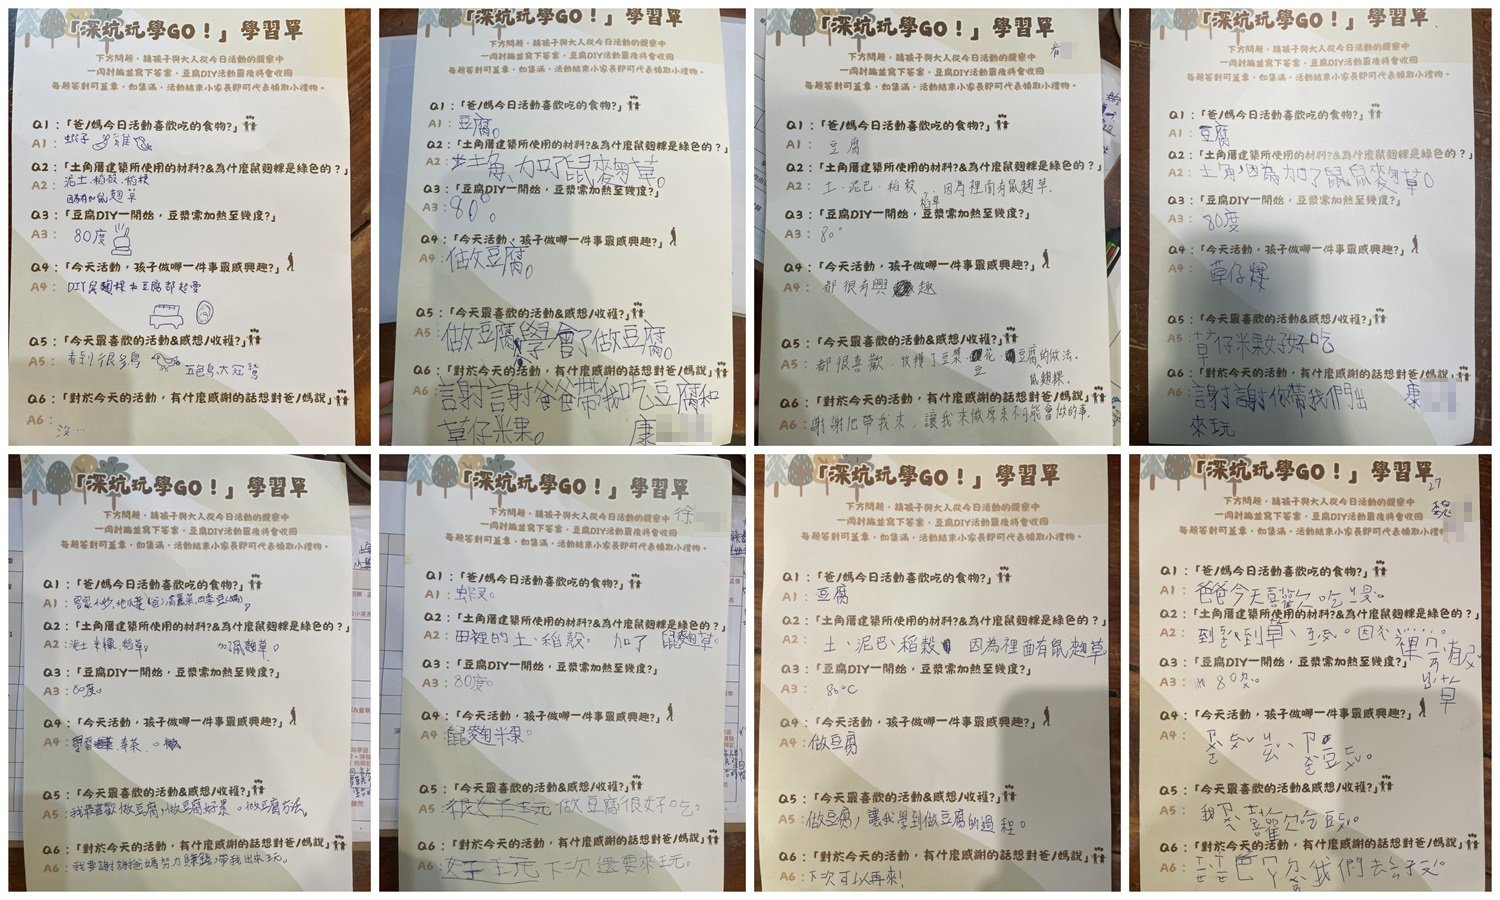 「深坑玩學GO！」學習單
下方問題，請孩子與大人從今日活動的觀察中
一同討論並寫下答案，豆腐DIY活動最後將會收回
每題答對可蓋章，如集滿，活動結束小家長即可代表領取小禮物。
Q1：「爸/媽今日活動喜歡吃的食物?」
A1：蝦子 雞
Q2：「土角厝建築所使用的材料?&為什麼鼠麴粿是綠色的？」
A2：泥土、稻殼、稻梗
因為有加鼠麴草
Q3：「豆腐DIY一開始，豆漿需加熱至幾度?」
A3：80度
Q4：「今天活動，孩子做哪一件事最感興趣?」
A4：DIY鼠麴粿和豆腐都起要
Q5：「今天最喜歡的活動&感想/收穫?」
A5：看到很多鳥 五色鳥、大冠鷲
Q6：「對於今天的活動，有什麼感謝的話想對爸/媽說」
A6：
沒...
「深坑玩學GO！」學習單
下方問題，請孩子與大人從今日活動的觀察中
一同討論並寫下答案，豆腐DIY活動最後將會收回
每題答對可蓋章，如集滿，活動結束小家長即可代表領取小禮物。
Q1：「爸/媽今日活動喜歡吃的食物?」
A1：豆腐。
Q2：「土角厝建築所使用的材料?&為什麼鼠麴粿是綠色的？」
A2：土角，加了鼠麴草。
Q3：「豆腐DIY一開始，豆漿需加熱至幾度?」
A3：80°。
Q4：「今天活動，孩子做哪一件事最感興趣?」
A4：做豆腐。
Q5：「今天最喜歡的活動&感想/收穫?」
A5：做豆腐，學會了做豆腐。
Q6：「對於今天的活動，有什麼感謝的話想對爸/媽說」
A6：謝謝爸爸帶我吃豆腐和
草仔粿。 康
「深坑玩學GO！」學習單
下方問題，請孩子與大人從今日活動的觀察中
一同討論並寫下答案，豆腐DIY活動最後將會收回
每題答對可蓋章，如集滿，活動結束小家長即可代表領取小禮物。
Q1：「爸/媽今日活動喜歡吃的食物?」
A1：豆腐
Q2：「土角厝建築所使用的材料?&為什麼鼠麴粿是綠色的？」
A2：土、泥巴、稻殼、稻草，因為裡面有鼠麴草。
Q3：「豆腐DIY一開始，豆漿需加熱至幾度?」
A3：80°
Q4：「今天活動，孩子做哪一件事最感興趣?」
A4：都很有興趣
Q5：「今天最喜歡的活動&感想/收穫?」
A5：都很喜歡，收穫了豆漿、豆花、豆腐的做法。
鼠麴粿。
Q6：「對於今天的活動，有什麼感謝的話想對爸/媽說」
A6：謝謝他帶我來，讓我來做原來不可能會做的事。
「深坑玩學GO！」學習單
下方問題，請孩子與大人從今日活動的觀察中
一同討論並寫下答案，豆腐DIY活動最後將會收回
每題答對可蓋章，如集滿，活動結束小家長即可代表領取小禮物。
Q1：「爸/媽今日活動喜歡吃的食物?」
A1：豆腐
Q2：「土角厝建築所使用的材料?&為什麼鼠麴粿是綠色的？」
A2：土角，因為加了鼠麴草。
Q3：「豆腐DIY一開始，豆漿需加熱至幾度?」
A3：80度
Q4：「今天活動，孩子做哪一件事最感興趣?」
A4：草仔粿
Q5：「今天最喜歡的活動&感想/收穫?」
A5：草仔粿好好吃
Q6：「對於今天的活動，有什麼感謝的話想對爸/媽說」
A6：謝謝你帶我們出 康
來玩
「深坑玩學GO！」學習單
下方問題，請孩子與大人從今日活動的觀察中
一同討論並寫下答案，豆腐DIY活動最後將會收回
每題答對可蓋章，如集滿，活動結束小家長即可代表領取小禮物。
Q1：「爸/媽今日活動喜歡吃的食物?」
A1：
Q2：「土角厝建築所使用的材料?&為什麼鼠麴粿是綠色的？」
A2：泥土 米糠、稻草。 加了鼠麴草。
Q3：「豆腐DIY一開始，豆漿需加熱至幾度?」
A3：80度。
Q4：「今天活動，孩子做哪一件事最感興趣?」
A4：
Q5：「今天最喜歡的活動&感想/收穫?」
A5：我最喜歡做豆腐，做豆腐好累。做豆腐方法。
Q6：「對於今天的活動，有什麼感謝的話想對爸/媽說」
A6：我要謝謝爸媽努力賺錢，帶我出來玩。
「深坑玩學GO！」學習單
徐
下方問題，請孩子與大人從今日活動的觀察中
一同討論並寫下答案，豆腐DIY活動最後將會收回
每題答對可蓋章，如集滿，活動結束小家長即可代表領取小禮物。
Q1：「爸/媽今日活動喜歡吃的食物?」
A1：蝦
Q2：「土角厝建築所使用的材料?&為什麼鼠麴粿是綠色的？」
A2：田裡的土、稻殼。 加了 鼠麴草。
Q3：「豆腐DIY一開始，豆漿需加熱至幾度?」
A3：80度。
Q4：「今天活動，孩子做哪一件事最感興趣?」
A4：鼠麴粿。
Q5：「今天最喜歡的活動&感想/收穫?」
A5：很好玩 做豆腐很好吃。
Q6：「對於今天的活動，有什麼感謝的話想對爸/媽說」
A6：好玩下次還要來玩。
「深坑玩學GO！」學習單
下方問題，請孩子與大人從今日活動的觀察中
一同討論並寫下答案，豆腐DIY活動最後將會收回
每題答對可蓋章，如集滿，活動結束小家長即可代表領取小禮物。
Q1：「爸/媽今日活動喜歡吃的食物?」
A1：豆腐
Q2：「土角厝建築所使用的材料?&為什麼鼠麴粿是綠色的？」
A2：土、泥巴、稻穀 因為裡面有鼠麴草
Q3：「豆腐DIY一開始，豆漿需加熱至幾度?」
A3：80°C
Q4：「今天活動，孩子做哪一件事最感興趣?」
A4：做豆腐
Q5：「今天最喜歡的活動&感想/收穫?」
A5：做豆腐，讓我學到做豆腐的過程。
Q6：「對於今天的活動，有什麼感謝的話想對爸/媽說」
A6：下次可以再來!
「深坑玩學GO！」學習單
27
魏
下方問題，請孩子與大人從今日活動的觀察中
一同討論並寫下答案，豆腐DIY活動最後將會收回
每題答對可蓋章，如集滿，活動結束小家長即可代表領取小禮
Q1：「爸/媽今日活動喜歡吃的食物?」
A1：爸爸今天喜歡吃
Q2：「土角厝建築所使用的材料?&為什麼鼠麴粿是綠色的？」
A2：
Q3：「豆腐DIY一開始，豆漿需加熱至幾度?」
A3：80ㄉㄨ。
Q4：「今天活動，孩子做哪一件事最感興趣?」
A4：
Q5：「今天最喜歡的活動&感想/收穫?」
A5：
Q6：「對於今天的活動，有什麼感謝的話想對爸/媽說」
A6：